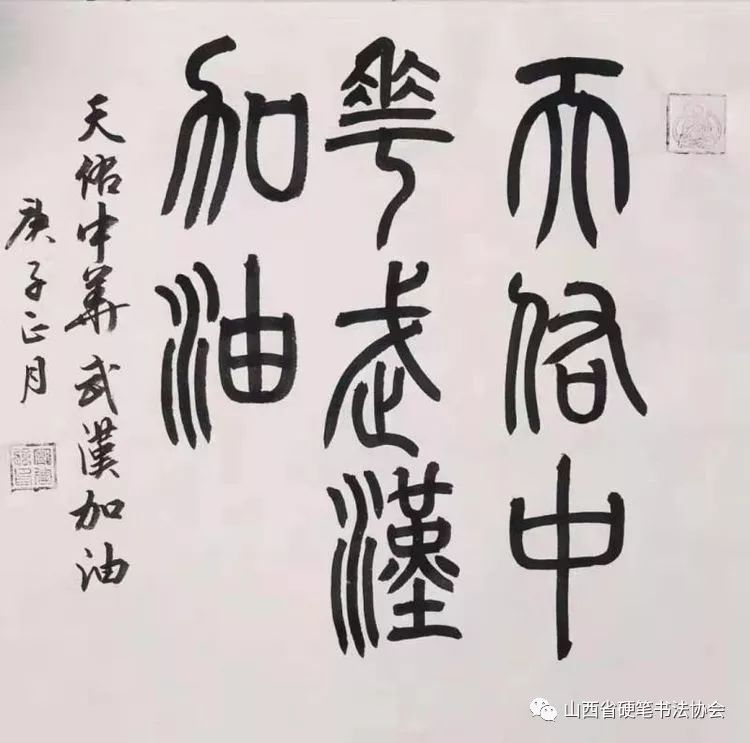 天佑中
華武漢
加油
天佑中華武漢加油
庚子正月
山西省硬笔书法协会